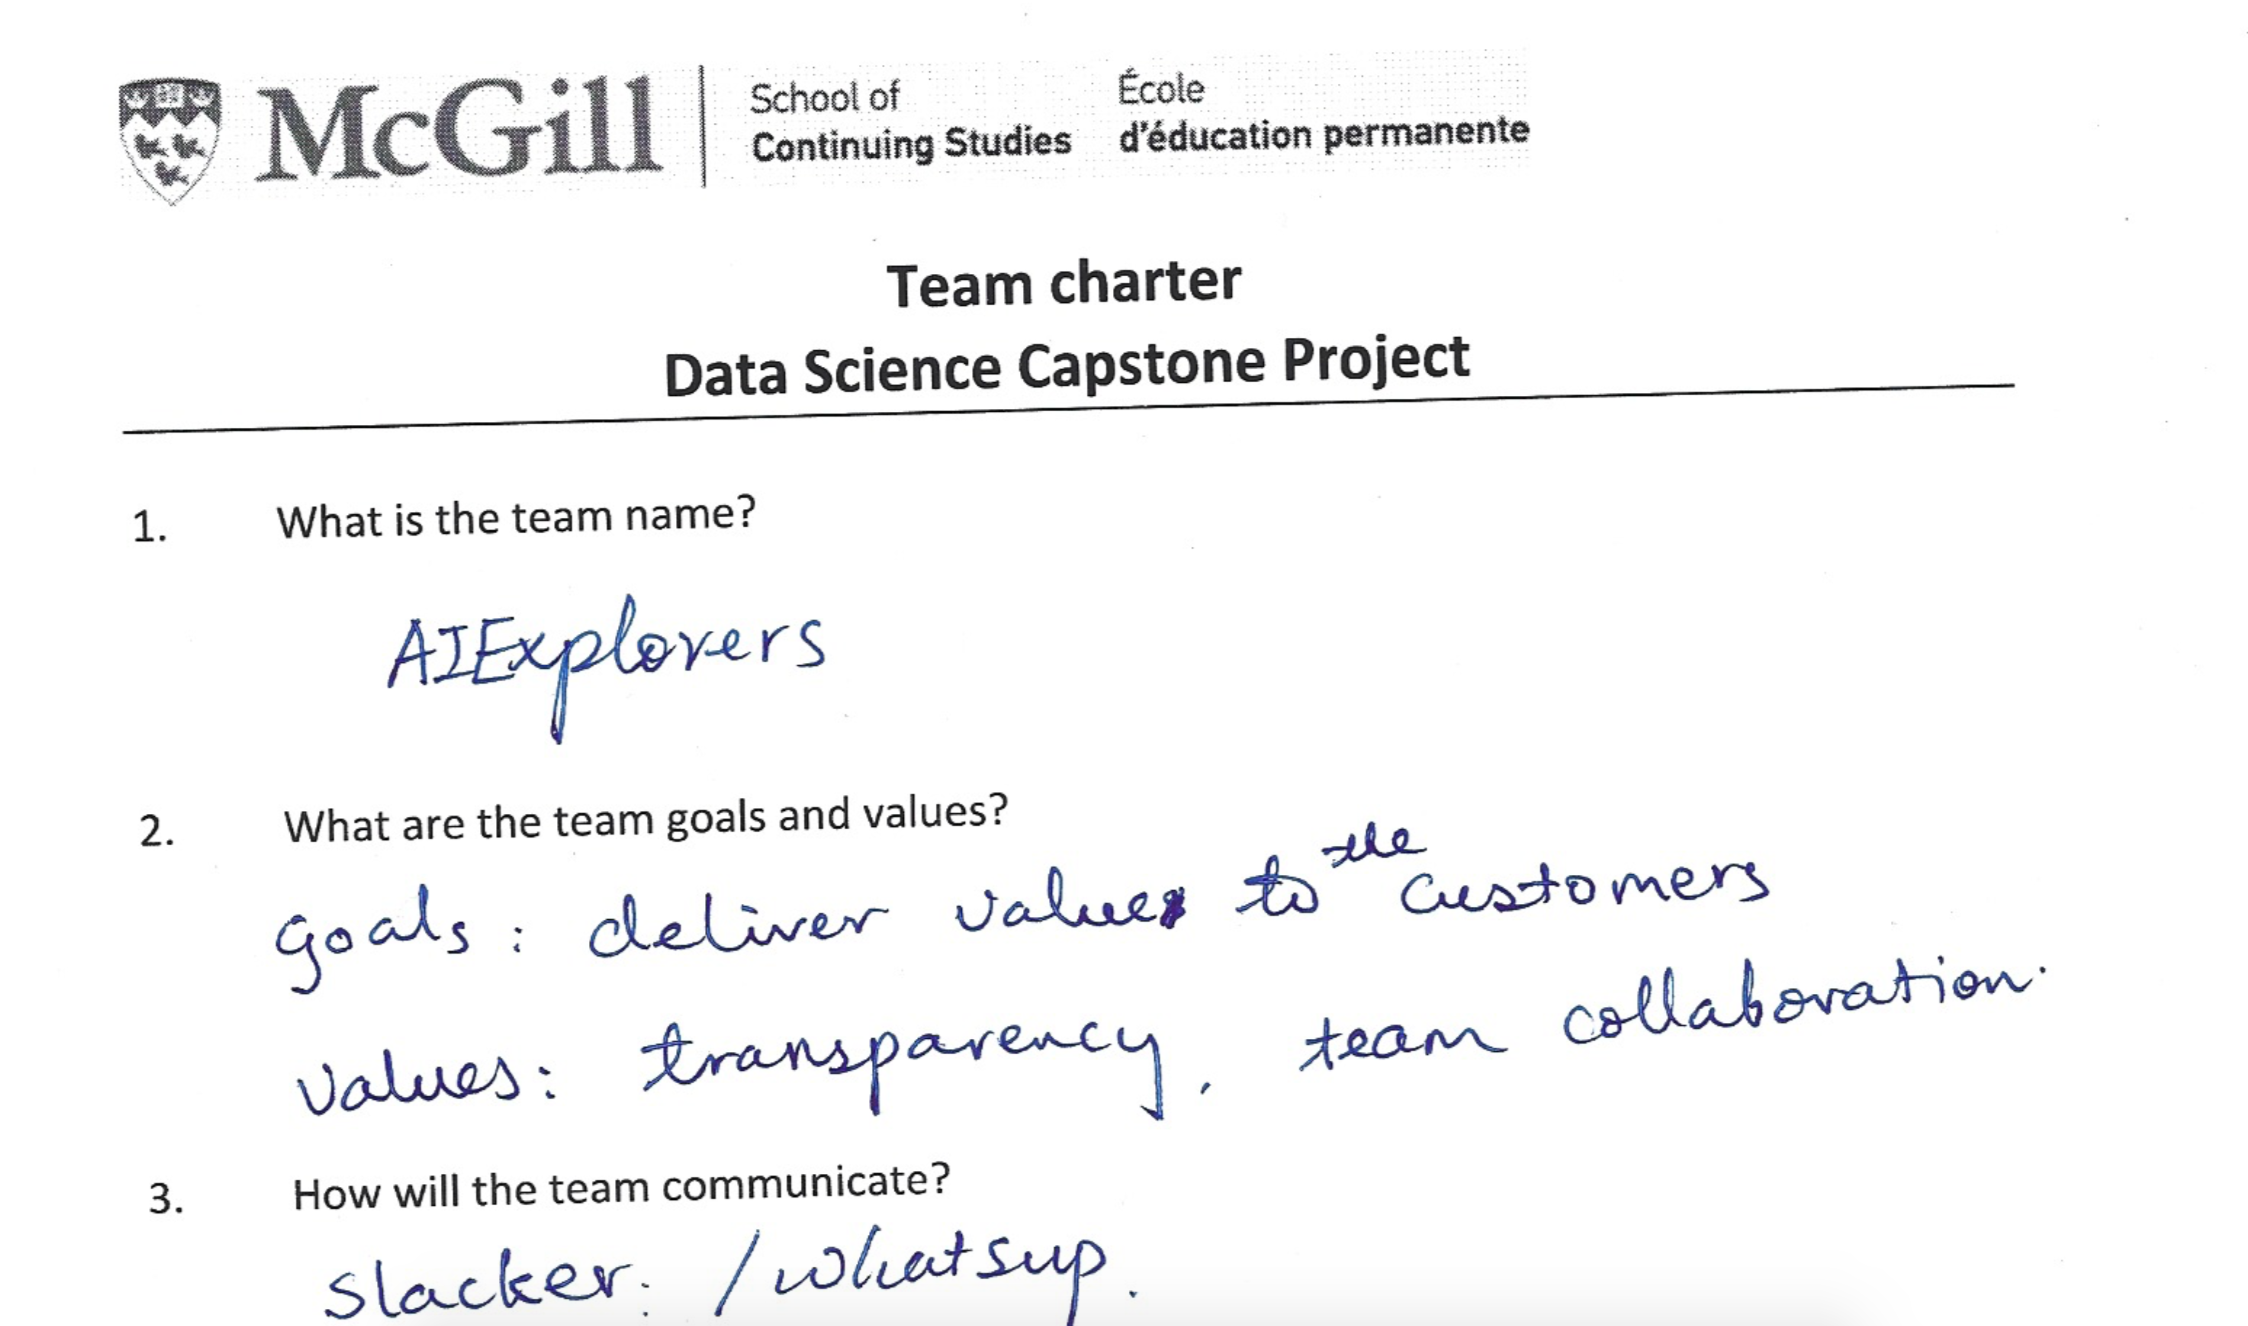 McGill
School of
Continuing Studies
École
d'éducation permanente
Team charter
Data Science Capstone Project
1. What is the team name?
AIExplorers
2. What are the team goals and values?
goals: deliver value to the customers
values: transparency, team collaboration.
3. How will the team communicate?
slacker. /whatsup.